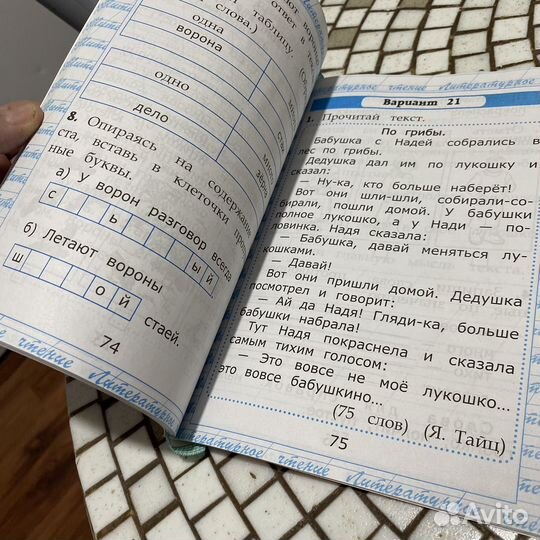 ответ в
таблицу.
слова.)
одна
ворона
одно
дело
8. Опираясь на содержание
ста, вставь в клеточки
ные буквы.
а) У ворон разговор всегда
с ь ы й
б) Летают вороны
ш о й стаей.
74
Литературное чтение Литературное
Вариант 21
1. Прочитай текст.
По грибы.
Бабушка с Надей собрались в
лес по грибы.
Дедушка дал им по лукошку и
сказал:
— Ну-ка, кто больше наберёт!
Вот они шли-шли, собирали-со-
бирали, пошли домой. У бабушки
полное лукошко, а у Нади — по-
ловинка. Надя сказала:
— Бабушка, давай меняться лу-
кошками.
— Давай!
Вот они пришли домой. Дедушка
посмотрел и говорит:
— Ай да Надя! Гляди-ка, больше
бабушки набрала!
Тут Надя покраснела и сказала
самым тихим голосом:
— Это вовсе не моё лукошко...
это вовсе бабушкино...
(75 слов) (Я. Тайц)
75
чтение Литературное
Литературное чтение Литературное
Avito